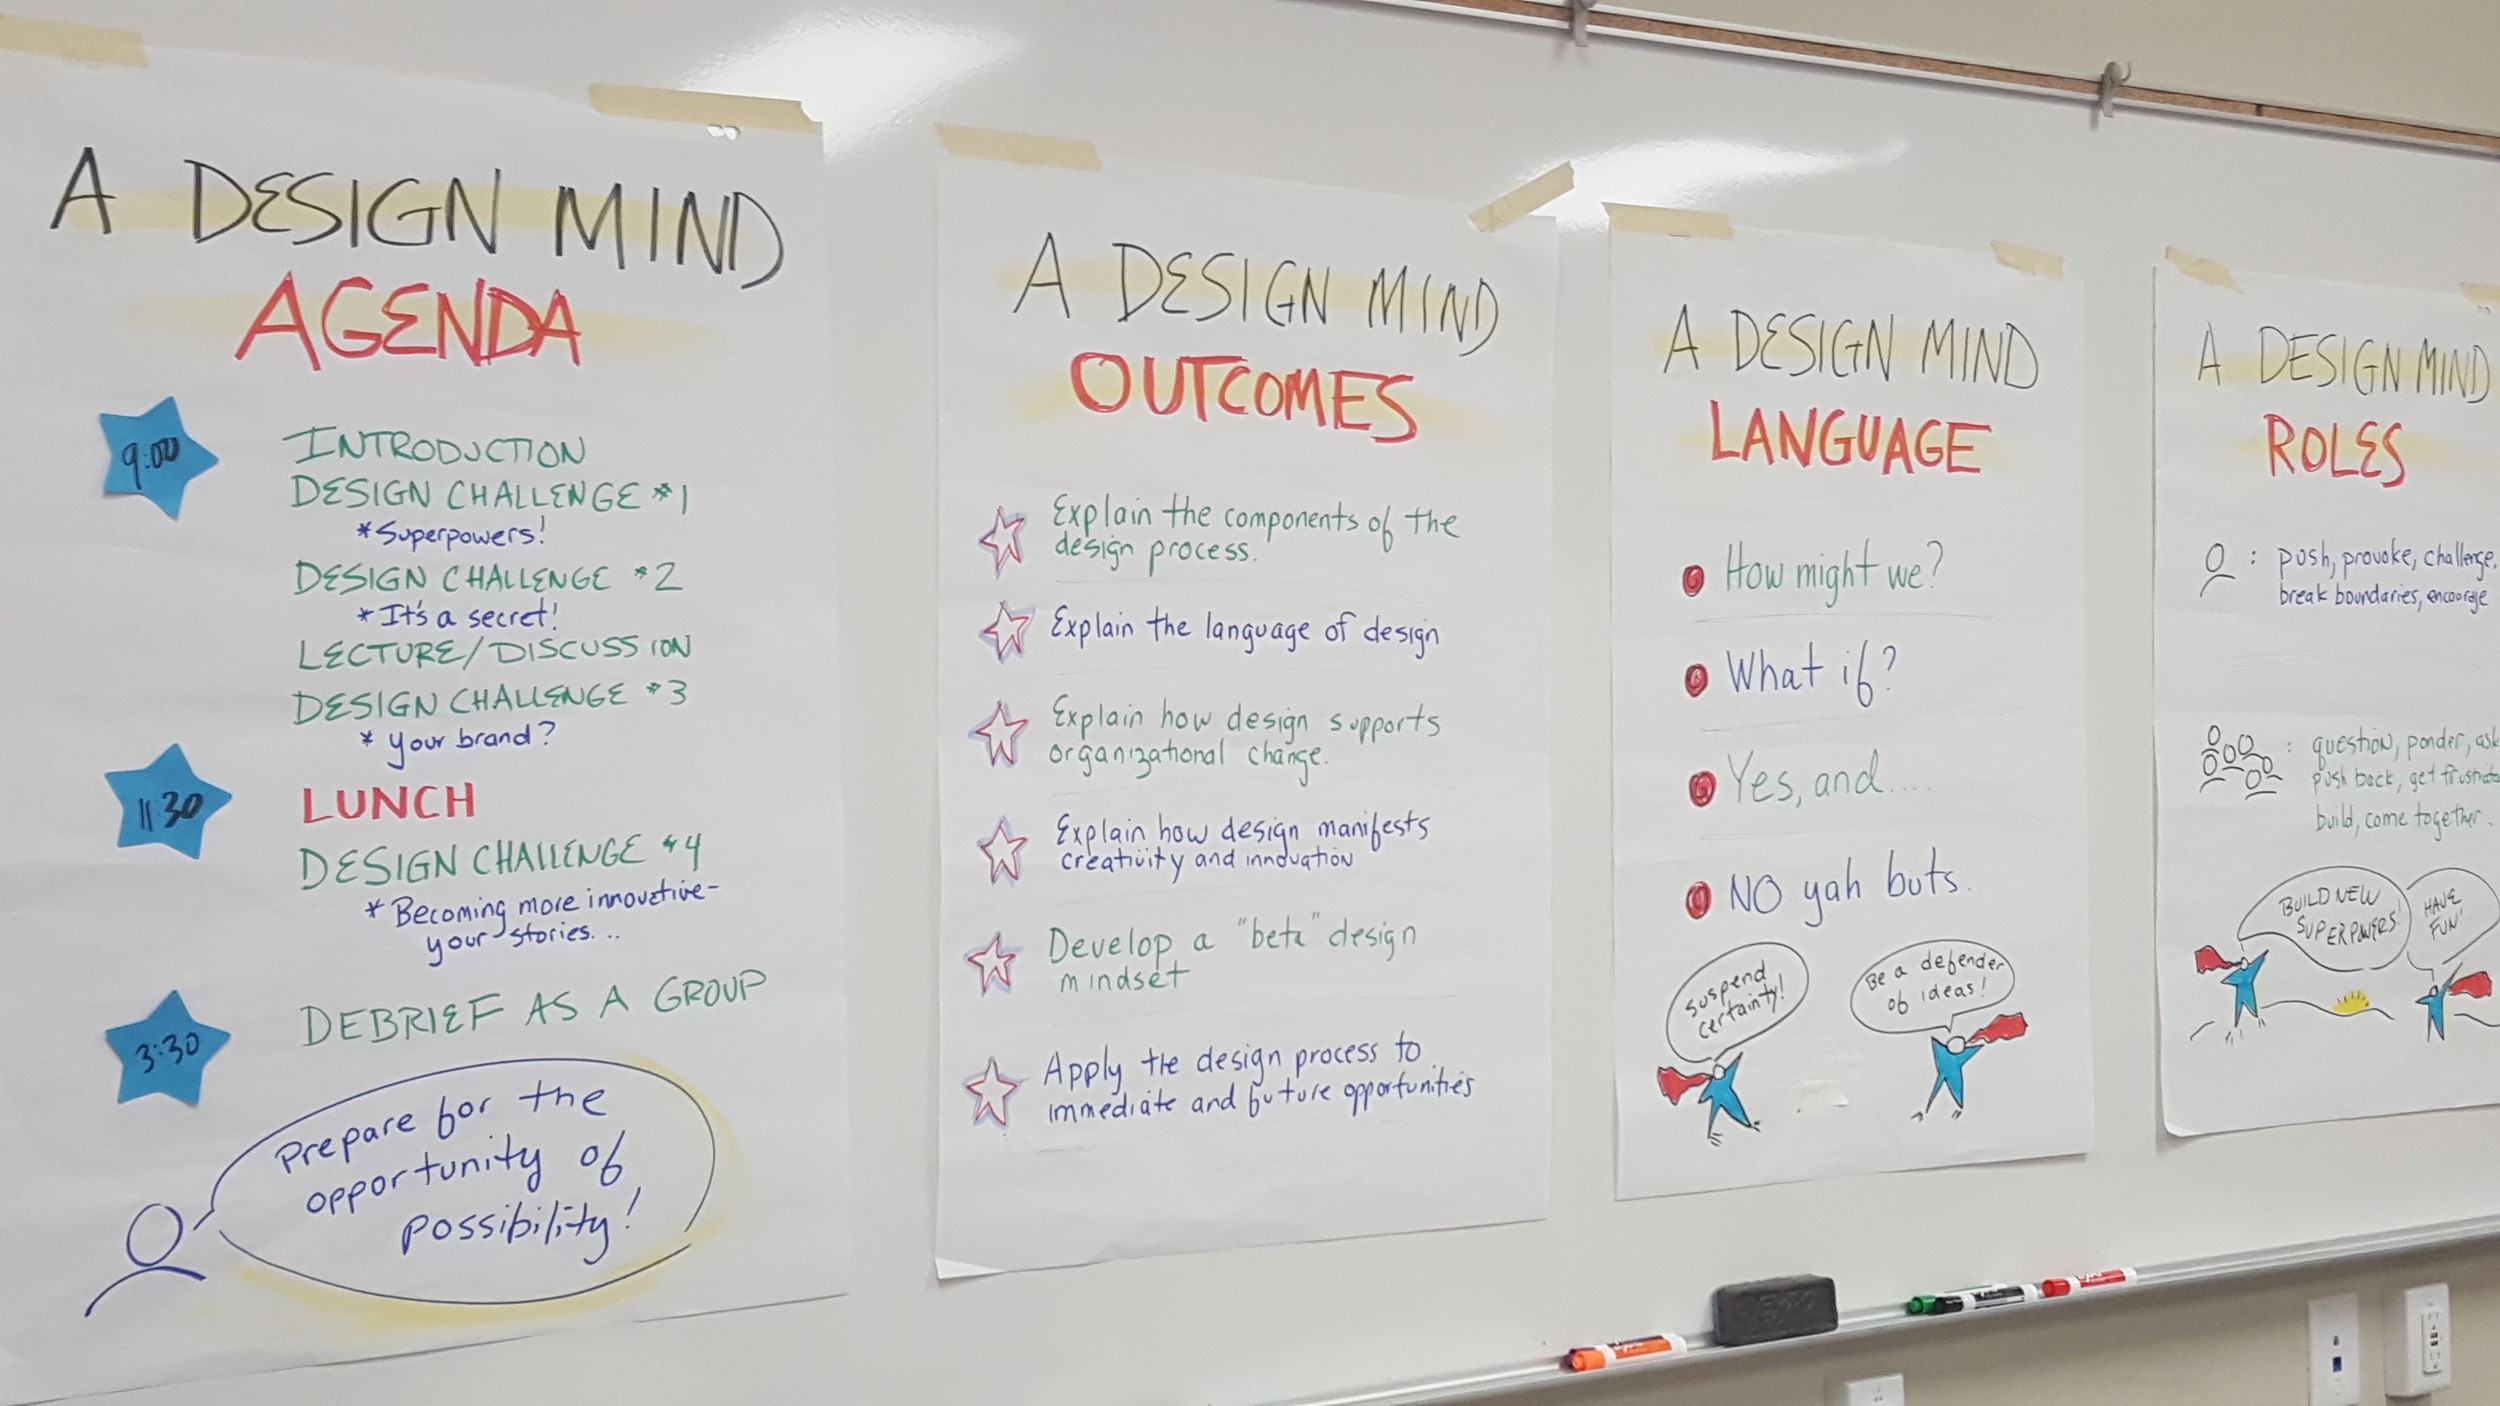 A DESIGN MIND
AGENDA
9:00
INTRODUCTION
DESIGN CHALLENGE #1
* Superpowers!
DESIGN CHALLENGE #2
* It's a secret!
LECTURE/DISCUSSION
DESIGN CHALLENGE #3
* your brand?
11:30
LUNCH
DESIGN CHALLENGE #4
* Becoming more innovative-
your stories...
3:30
DEBRIEF AS A GROUP
Prepare for the
opportunity of
possibility!
A DESIGN MIND
OUTCOMES
Explain the components of the
design process.
Explain the language of design
Explain how design supports
organizational change.
Explain how design manifests
creativity and innovation
Develop a "beta" design
mindset
Apply the design process to
immediate and future opportunities
A DESIGN MIND
LANGUAGE
How might we?
What if?
Yes, and....
NO yah buts.
Suspend
certainty!
Be a defender
of ideas!
A DESIGN MIND
ROLES
: push, provoke, challenge,
break boundaries, encourage
: question, ponder, ask
push back, get
build, come together..
BUILD NEW
SUPERPOWERS!
HAVE
FUN!